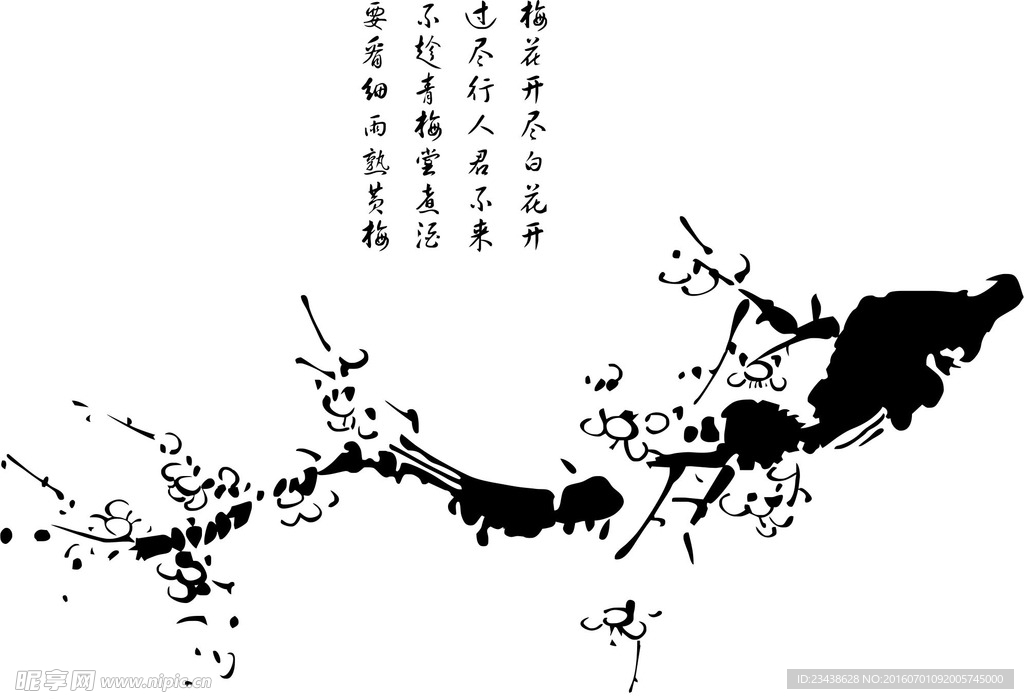 梅花开尽白花开
过尽行人君不来
不趁青梅堂煮酒
要看细雨熟黄梅
昵享网 www.nipic.cn
ID:23438628 NO:20160701092005745000